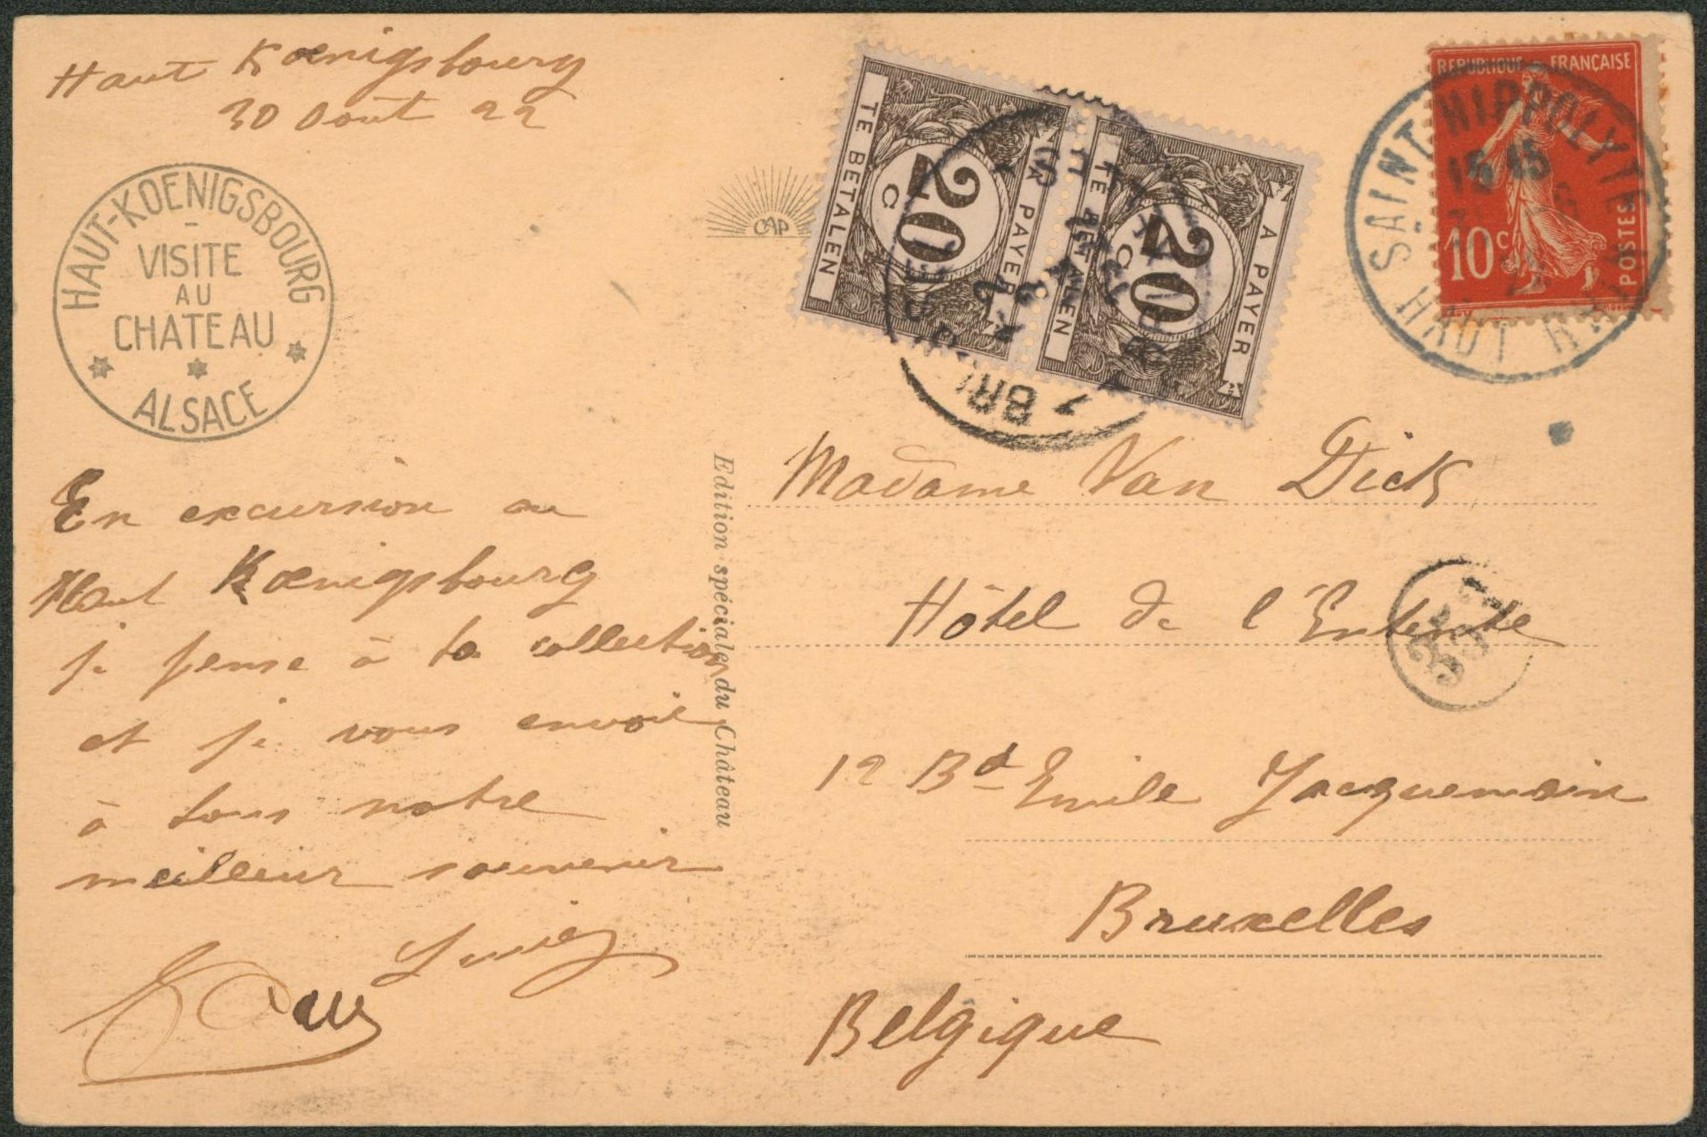 Haut Kœnigsbourg
30 Août 22
HAUT-KOENIGSBOURG
VISITE
AU
CHATEAU
ALSACE
CAP
TE BETALEN
20
C
A PAYER
TE BETALEN
20
C
A PAYER
BRU
1
REPUBLIQUE FRANÇAISE
10c
POSTES
SAINT-HIPPOLYTE
15 15
HAUT RHIN
En excursion au
Haut Kœnigsbourg
je pense à la collection
et je vous envoie
à tous notre
meilleur souvenir
Edition spéciale du Château
Madame Van Dick
Hôtel de l'Entente
12 Bd Emile Jacquemain
Bruxelles
Belgique